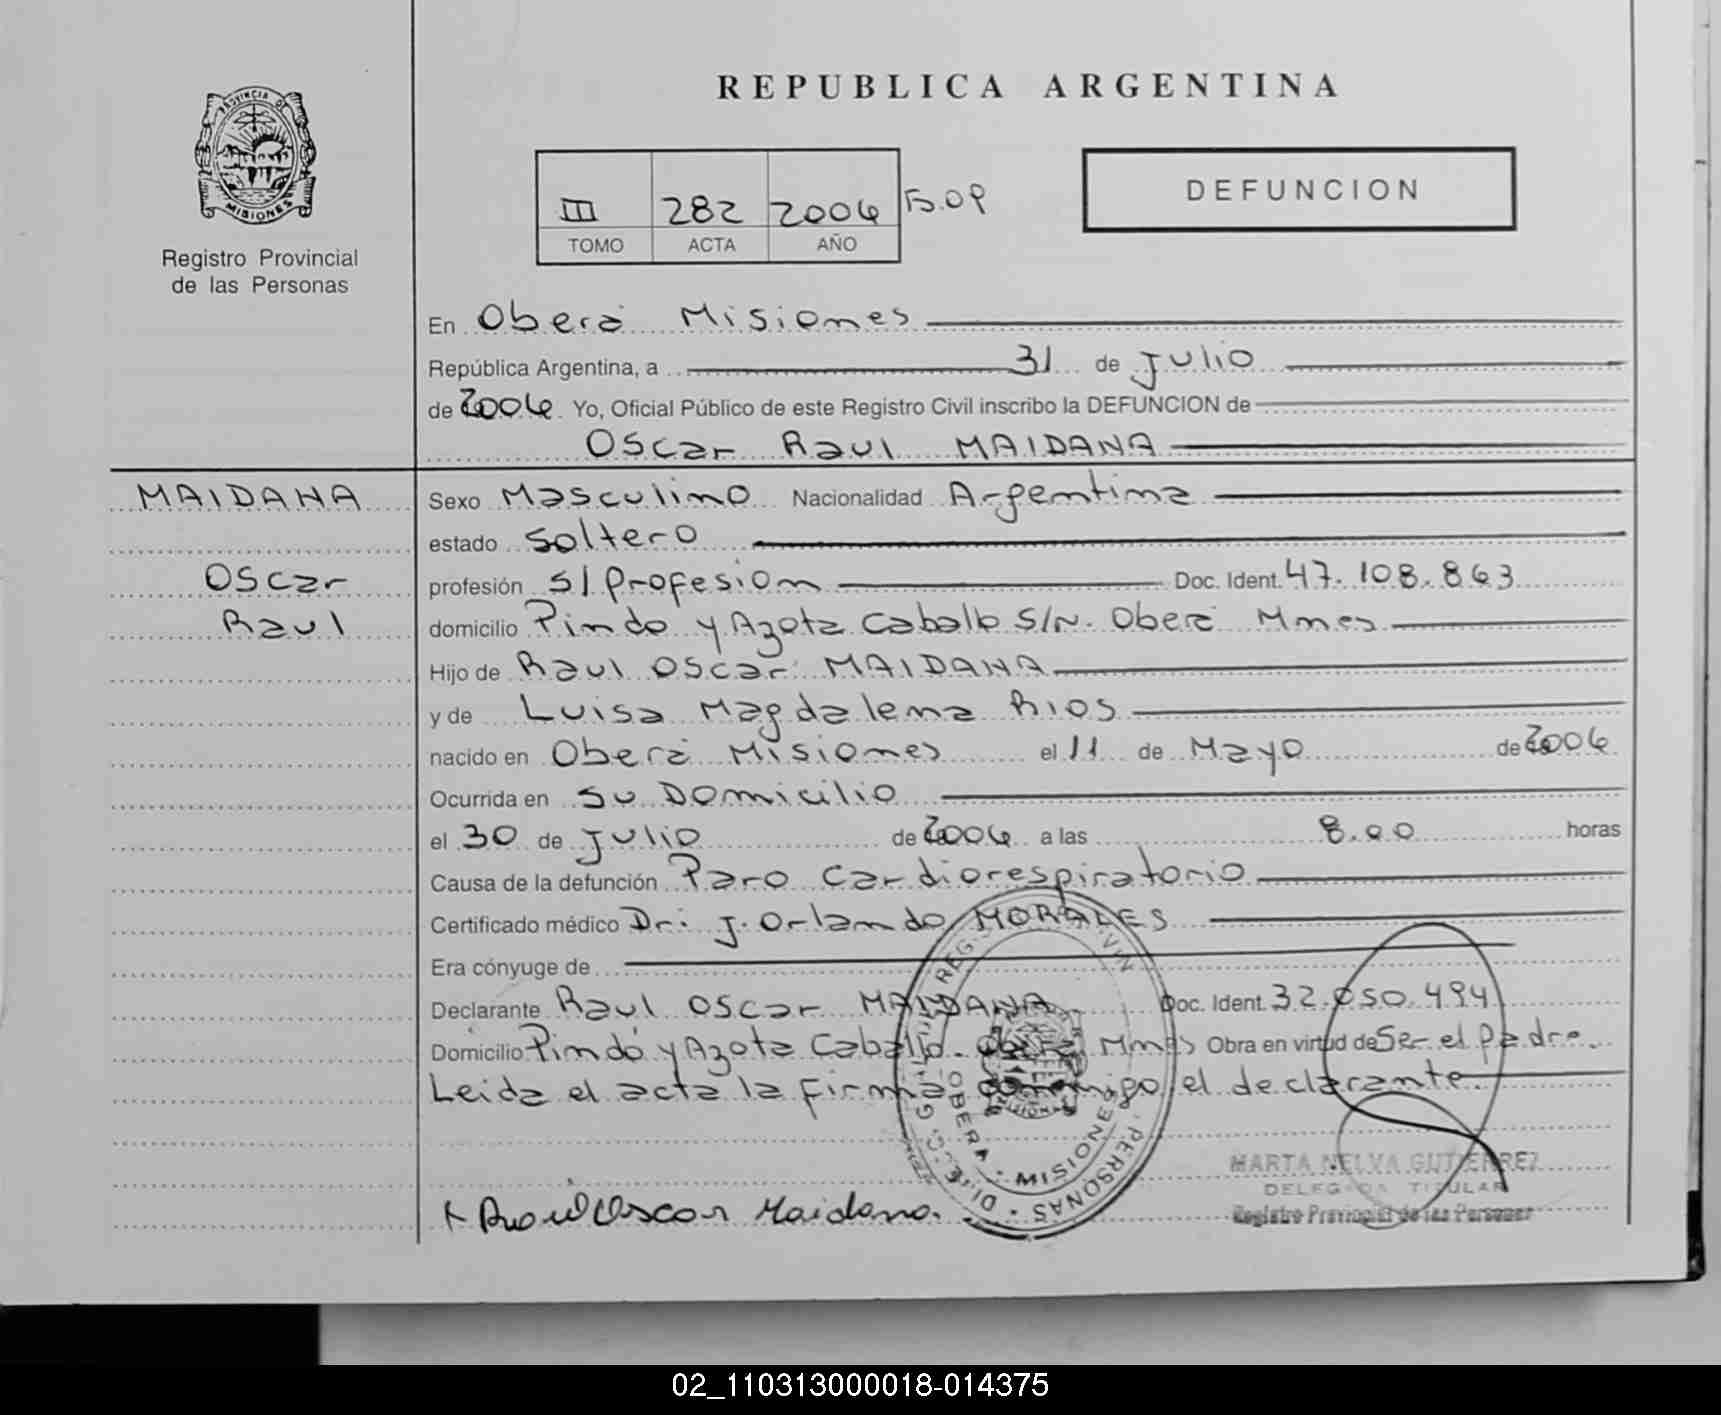 REPUBLICA ARGENTINA
PROVINCIA DE
MISIONES
Registro Provincial
de las Personas
III 282 2006
TOMO ACTA AÑO
DEFUNCION
En Oberá Misiones
República Argentina, a 31 de Julio
de 2006. Yo, Oficial Público de este Registro Civil inscribo la DEFUNCION de
Oscar Raul MAIDANA
MAIDANA
Oscar
Raul
Sexo Masculino Nacionalidad Argentina
estado Soltero
profesión S/Profesion Doc. Ident. 47.108.863
domicilio Pindo y Azota Caballo S/N. Oberá Mnes
Hijo de Raul Oscar MAIDANA
y de Luisa Magdalena Rios
nacido en Oberá Misiones el 11 de Mayo de 2006
Ocurrida en su Domicilio
el 30 de Julio de 2006 a las 8.00 horas
Causa de la defunción Paro Cardiorespiratorio
Certificado médico Dr: J. Orlando MORALES
Era cónyuge de
Declarante Raul Oscar MAIDANA Doc. Ident. 32.050.494
Domicilio Pindó y Azota Caballo. Oberá Mnes Obra en virtud de Ser el padre.
Leida el acta la firma conmigo el declarante.
OBERA - MISIONES
PERSONAS
MARTA NELVA GUTIERREZ
DELEGADA TITULAR
Registro Provincial de las Personas
Raúl Oscar Maidana.
02_110313000018-014375